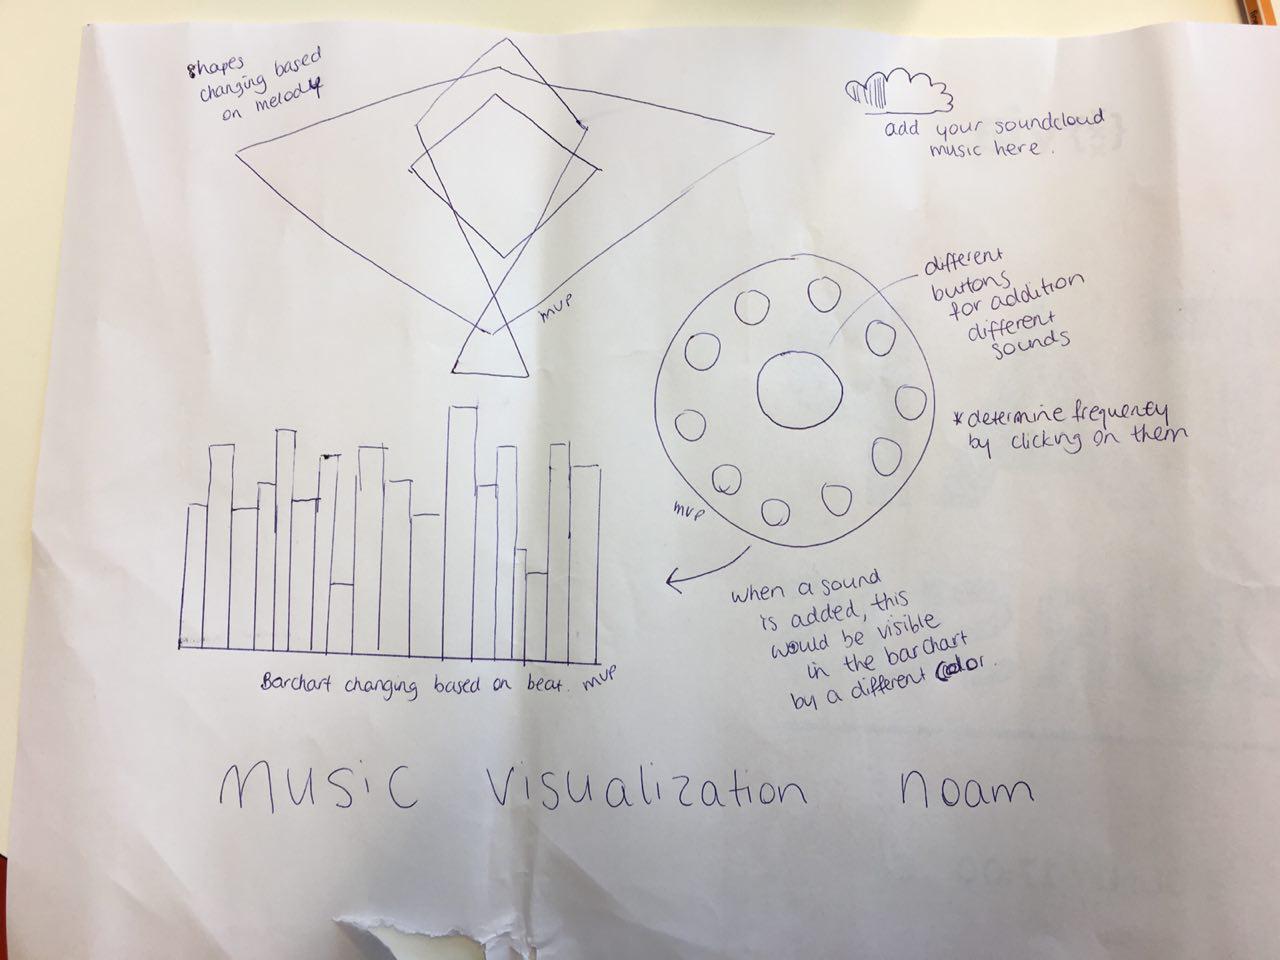 shapes
changing based
on melody
mvp
add your soundcloud
music here.
different
buttons
for addition
different
sounds
*determine frequenty
by clicking on them
mvp
when a sound
is added, this
would be visible
in the barchart
by a different color.
Barchart changing based on beat. mvp
Music visualization noam